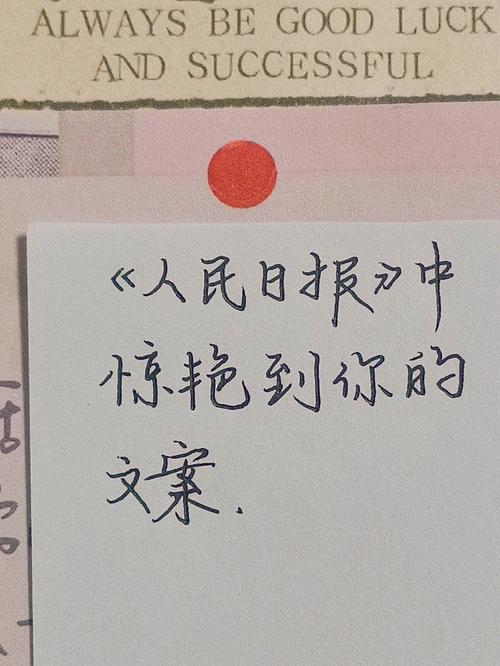 ALWAYS BE GOOD LUCK
AND SUCCESSFUL
《人民日报》中
惊艳到你的
文案.